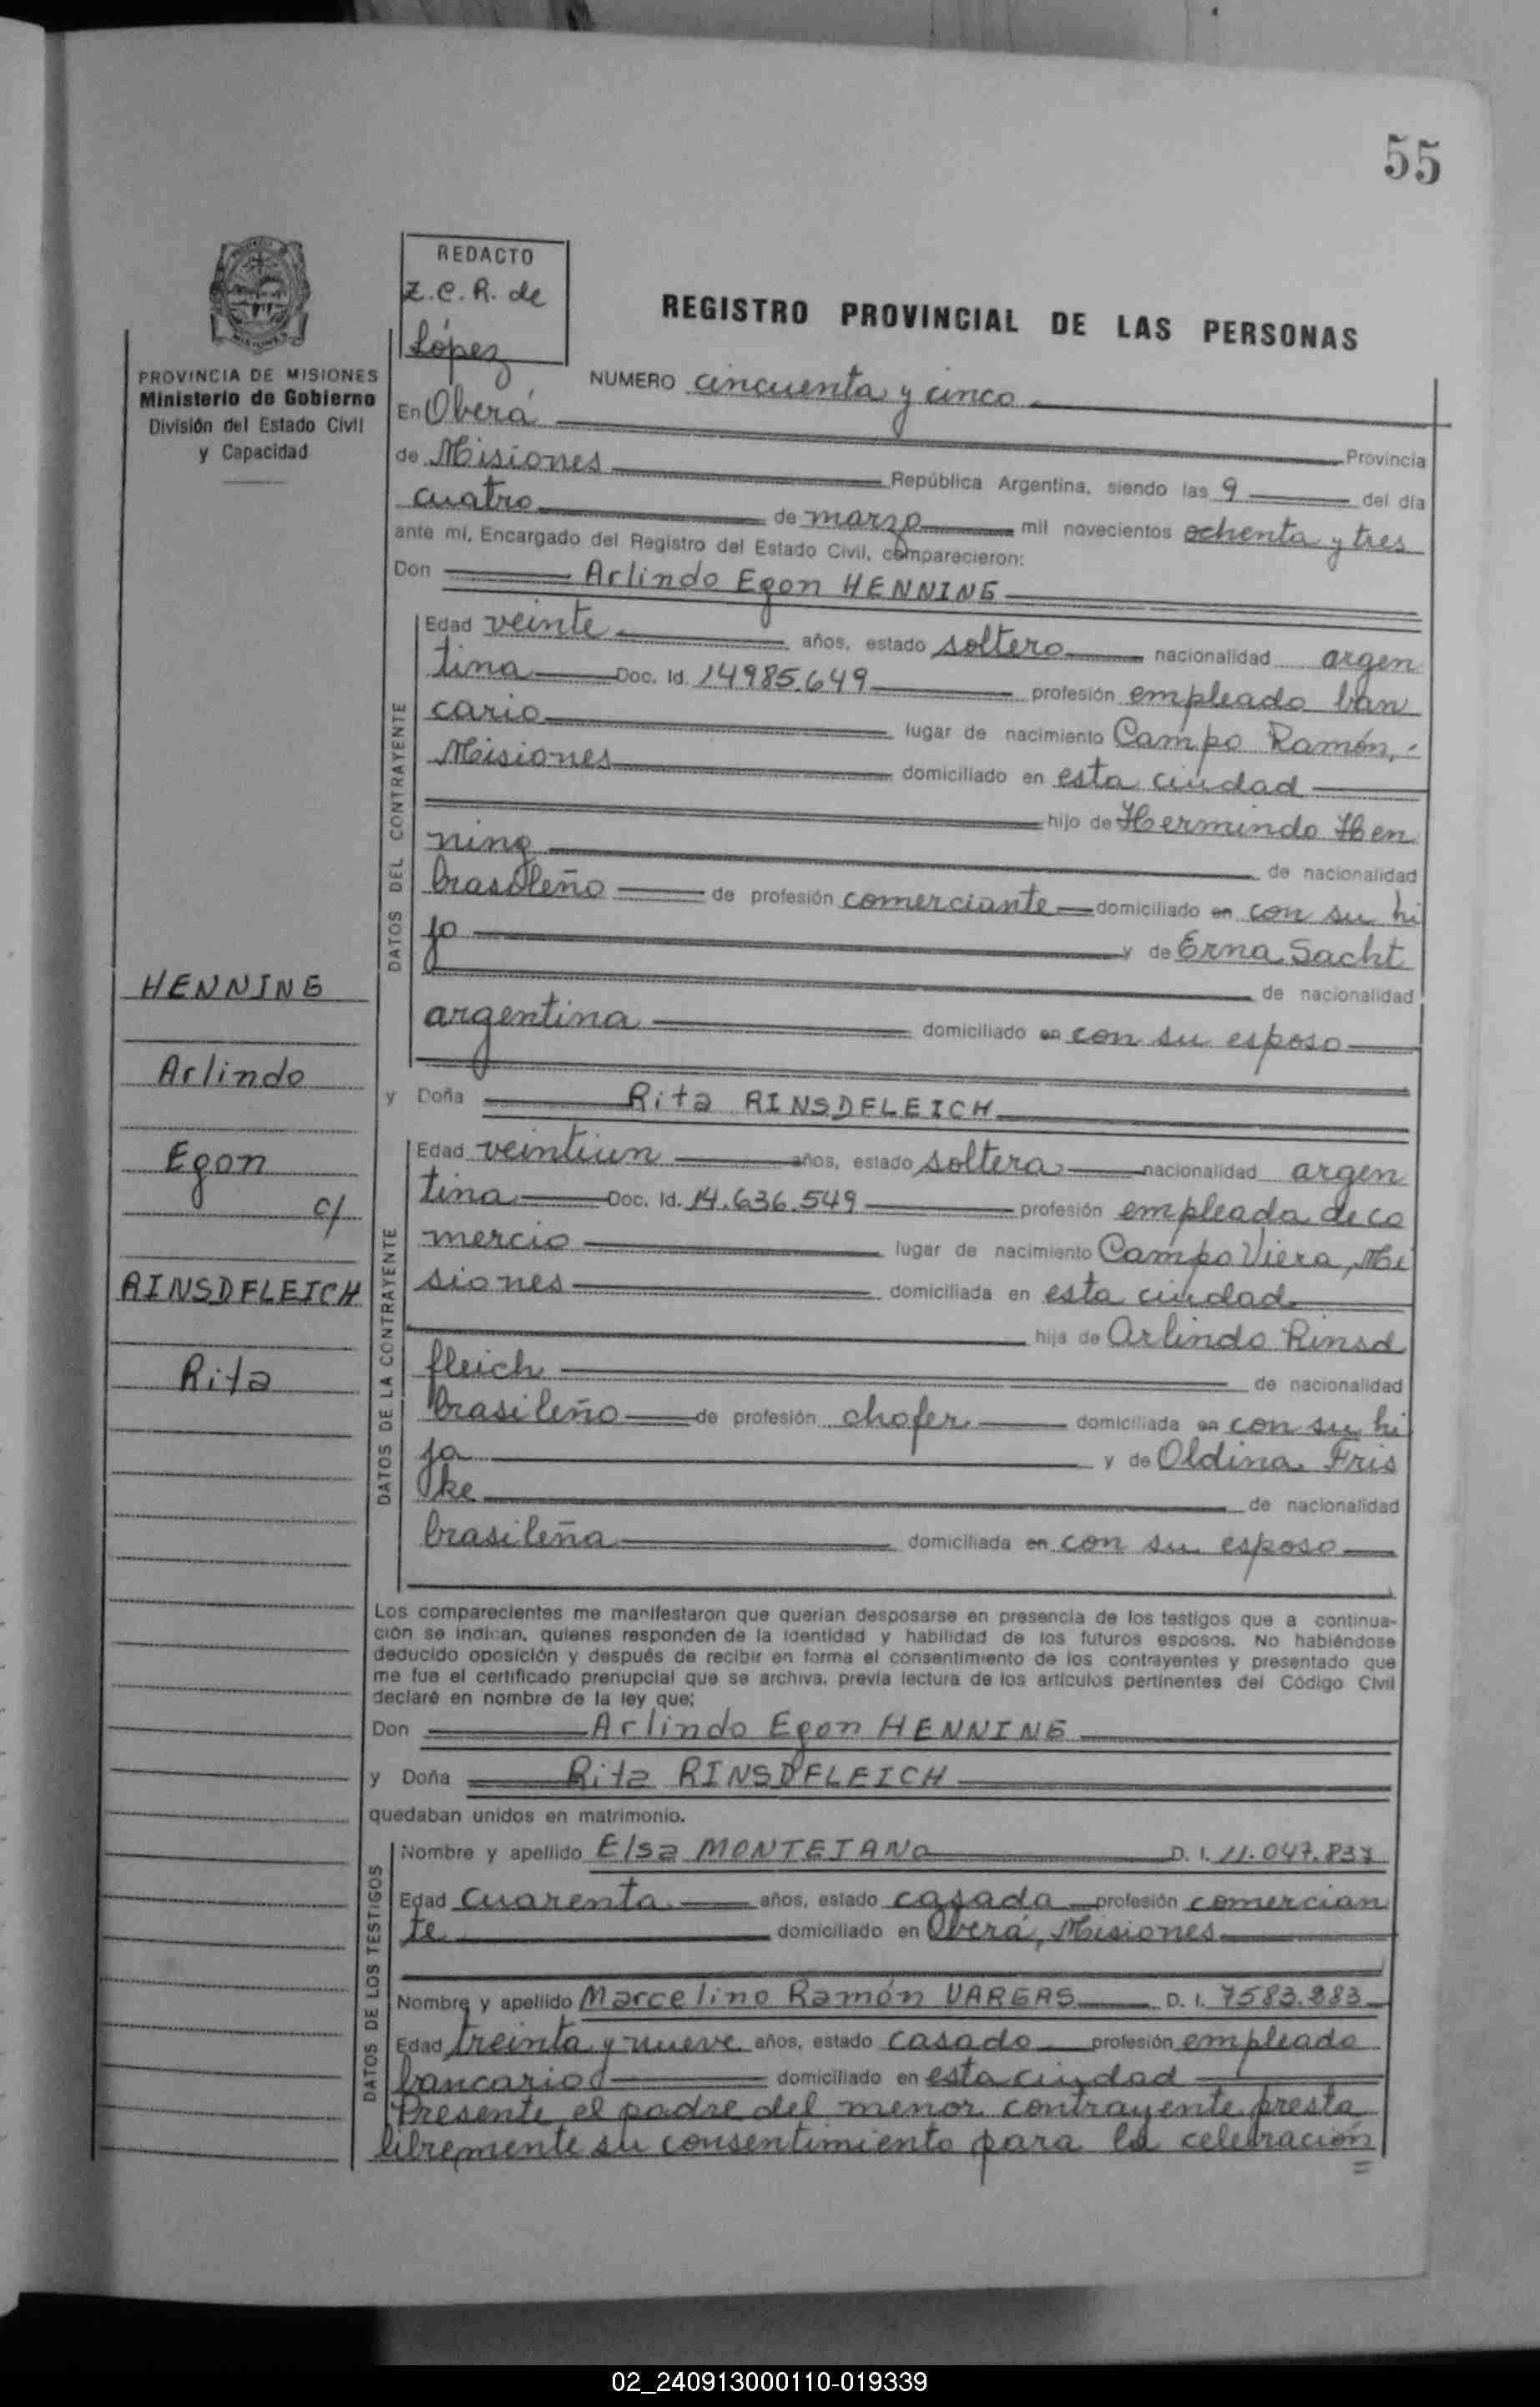 55
REDACTO
Z.C.R. de
López
REGISTRO PROVINCIAL DE LAS PERSONAS
PROVINCIA DE MISIONES
Ministerio de Gobierno
División del Estado Civil
y Capacidad
NUMERO cincuenta y cinco
En Oberá Provincia
de Misiones República Argentina, siendo las 9 del día
cuatro de marzo mil novecientos ochenta y tres
ante mí, Encargado del Registro del Estado Civil, comparecieron:
Don Arlindo Egon HENNING
DATOS DEL CONTRAYENTE
Edad veinte años, estado soltero nacionalidad argen
tina Doc. Id. 14985.649 profesión empleado ban
cario lugar de nacimiento Campo Ramón,
Misiones domiciliado en esta ciudad
hijo de Hermindo Hen
ning de nacionalidad
brasileño de profesión comerciante domiciliado en con su hi
jo y de Erna Sacht
de nacionalidad
argentina domiciliado en con su esposo
HENNING
Arlindo
Egon
c/
RINSDFLEICH
Rita
y Doña Rita RINSDFLEICH
DATOS DE LA CONTRAYENTE
Edad veintiun años, estado soltera nacionalidad argen
tina Doc. Id. 14.636.549 profesión empleada de co
mercio lugar de nacimiento Campo Viera, Mi
siones domiciliada en esta ciudad
hija de Arlindo Rinsd
fleich de nacionalidad
brasileño de profesión chofer domiciliada en con su hi
ja y de Oldina Fris
ke de nacionalidad
brasileña domiciliada en con su esposo
Los comparecientes me manifestaron que querían desposarse en presencia de los testigos que a continua-
ción se indican, quienes responden de la identidad y habilidad de los futuros esposos. No habiéndose
deducido oposición y después de recibir en forma el consentimiento de los contrayentes y presentado que
me fue el certificado prenupcial que se archiva, previa lectura de los artículos pertinentes del Código Civil
declaré en nombre de la ley que:
Don Arlindo Egon HENNING
y Doña Rita RINSDFLEICH
quedaban unidos en matrimonio.
DATOS DE LOS TESTIGOS
Nombre y apellido Elsa MONTEJANO D. I. 11.047.837
Edad cuarenta años, estado casada profesión comercian
te domiciliado en Oberá, Misiones
Nombre y apellido Marcelino Ramón VARGAS D. I. 7583.283
Edad treinta y nueve años, estado casado profesión empleado
bancario domiciliado en esta ciudad
Presente el padre del menor contrayente presta
libremente su consentimiento para la celebración
02_240913000110-019339